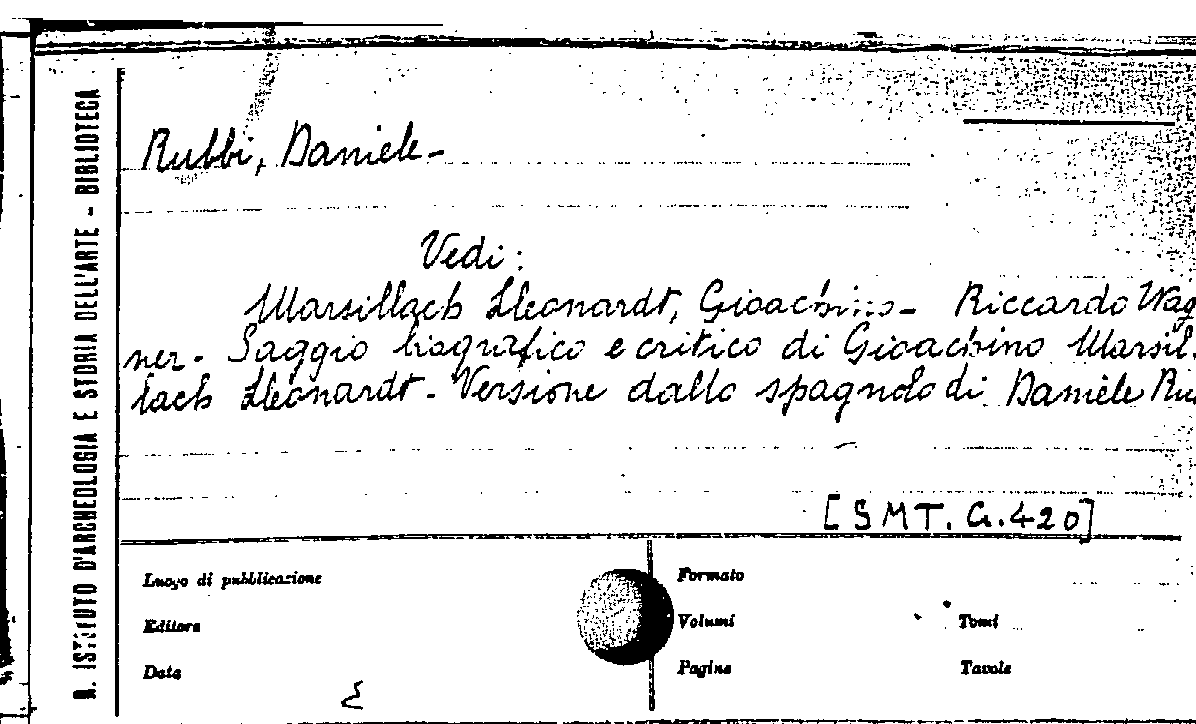 R. ISTITUTO D'ARCHEOLOGIA E STORIA DELL'ARTE - BIBLIOTECA
Rubbi, Daniele-
Vedi:
Marsillach Lleonardt, Gioachino- Riccardo Wag
ner- Saggio biografico e critico di Gioachino Marsil-
lach Lleonardt- Versione dallo spagnolo di Daniele Ru
[SMT. G. 420]
Luogo di pubblicazione
Formato
Editore
Volumi
Tomi
Data
Pagine
Tavole